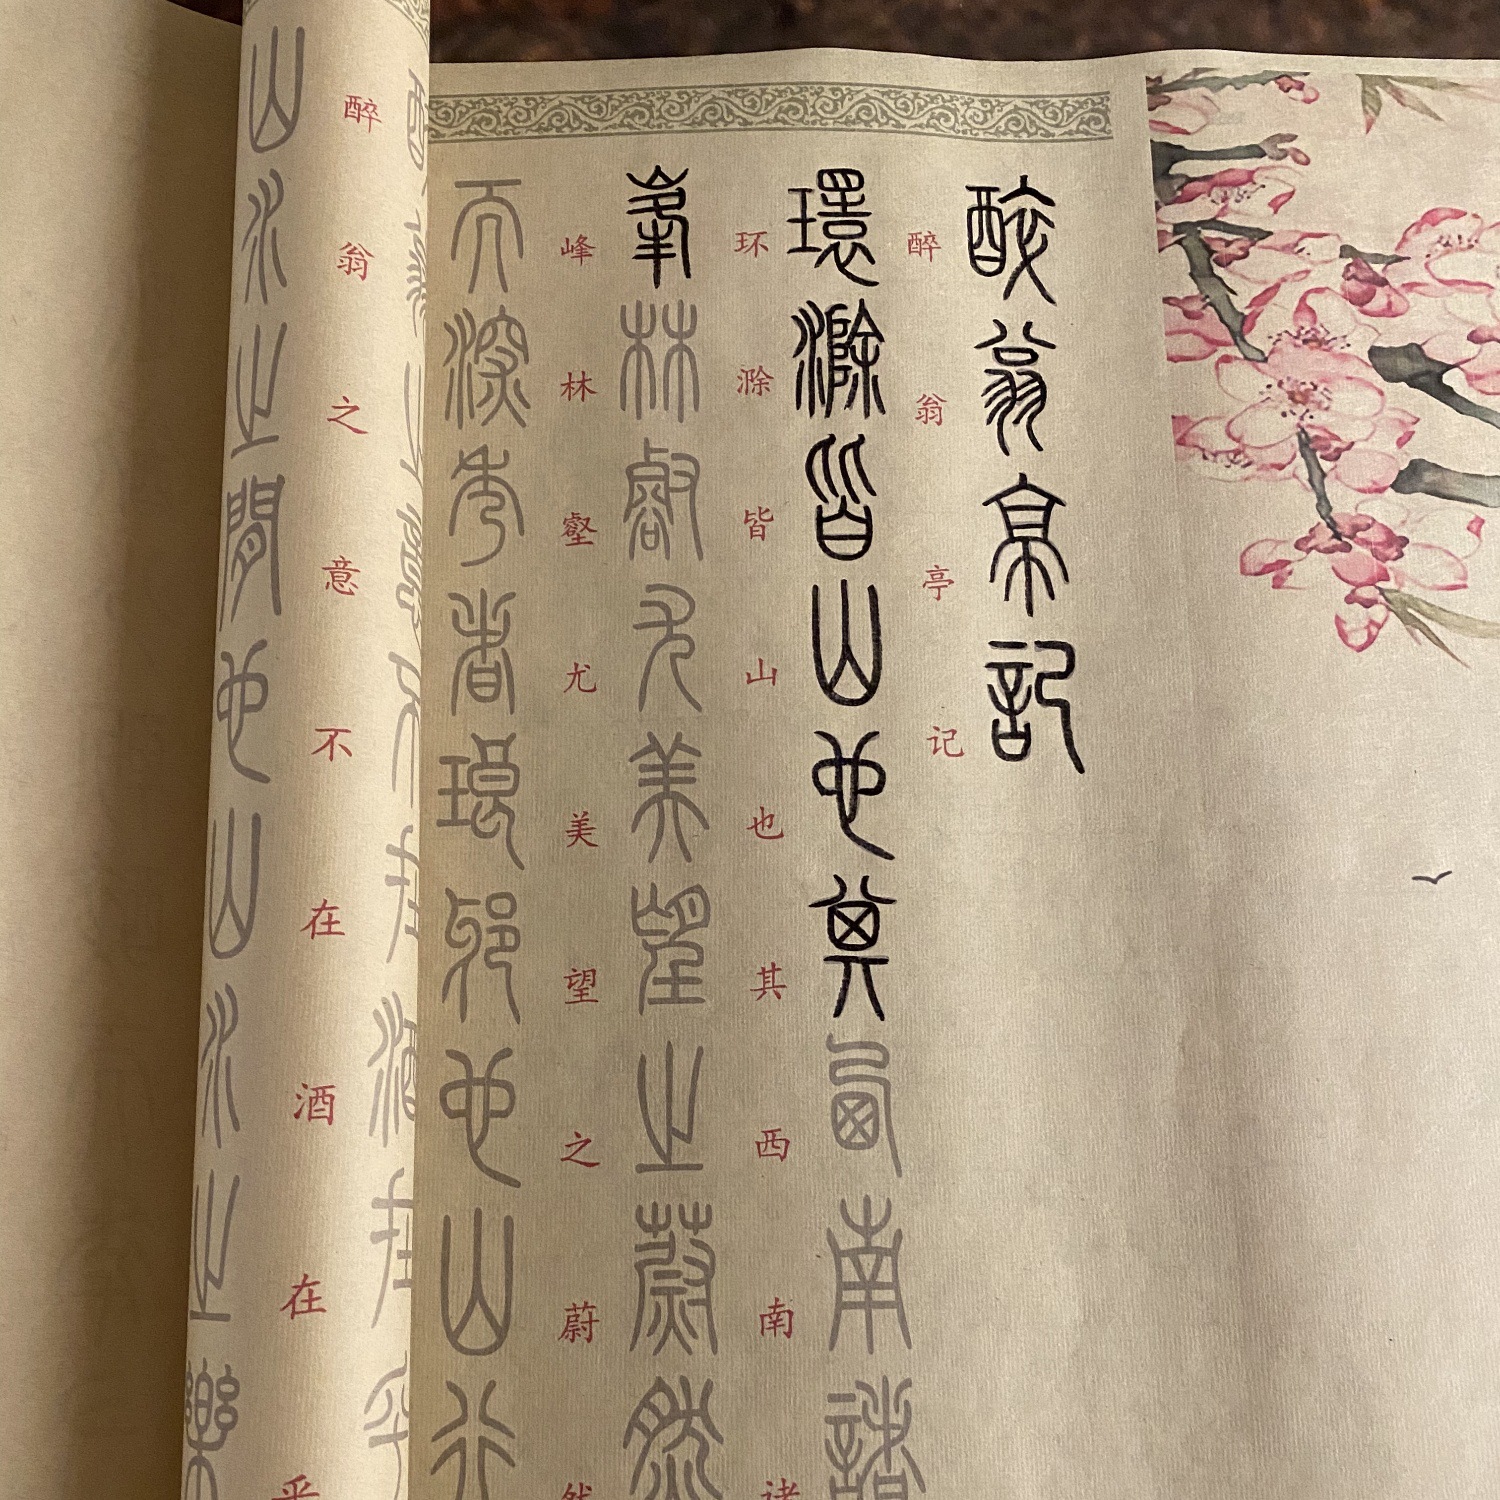 醉翁亭記
醉翁亭记
環滁皆山也其西南諸
环滁皆山也其西南诸
峯林壑尤美望之蔚然
峰林壑尤美望之蔚然
而深秀者琅邪也山行
醉翁之意不在酒在乎
醉翁之意不在酒在乎
山水之間也山水之樂